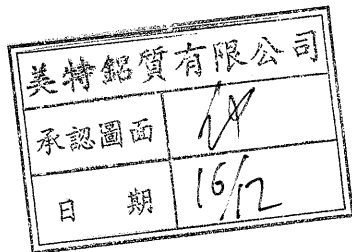 美特鋁質有限公司
承認圖面
日期 16/12